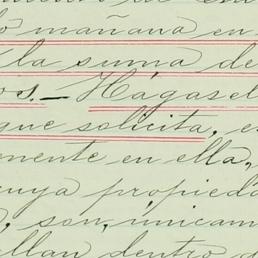 mañana en
la suma de
os._ Hágase l
que solicita, e
mente en ella,
uya propieda
, son, únicam
llan dentro d